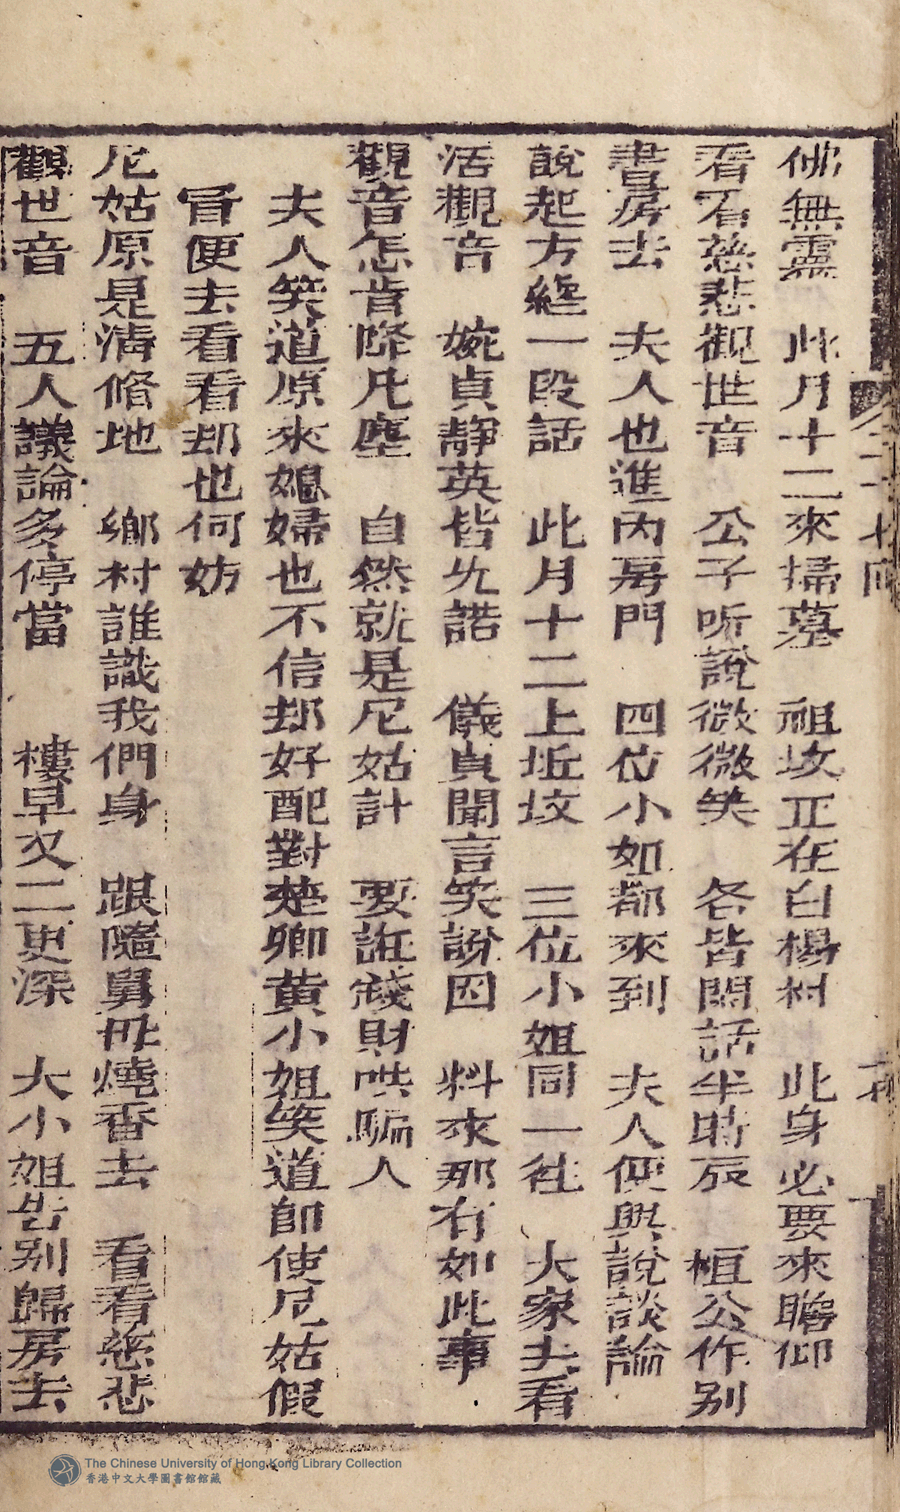 佛無靈　此月十二來掃墓　祖坟正在白楊村　此身必要來瞻仰
看看慈悲觀世音　公子听說微微笑　各皆閒話半時辰　桓公作别
書房去　夫人也進內房門　四位小如都來到　夫人便與說談論
說起方纔一段話　此月十二上坵坟　三位小姐同一徃　大家去看
活觀音　婉貞靜英皆允諾　儀貞聞言笑說因　料來那有如此事
觀音怎肯降凡塵　自然就是尼姑計　要誑錢財哄騙人
夫人笑道原來媳婦也不信却好配對楚卿黄小姐笑道即使尼姑假
冐便去看看却也何妨
尼姑原是清修地　鄉村誰識我們身　跟隨舅母燒香去　看看慈悲
觀世音　五人議論多停當　樓早又二更深　大小姐告别歸房去
二十七回
The Chinese University of Hong Kong Library Collection
香港中文大學圖書館館藏